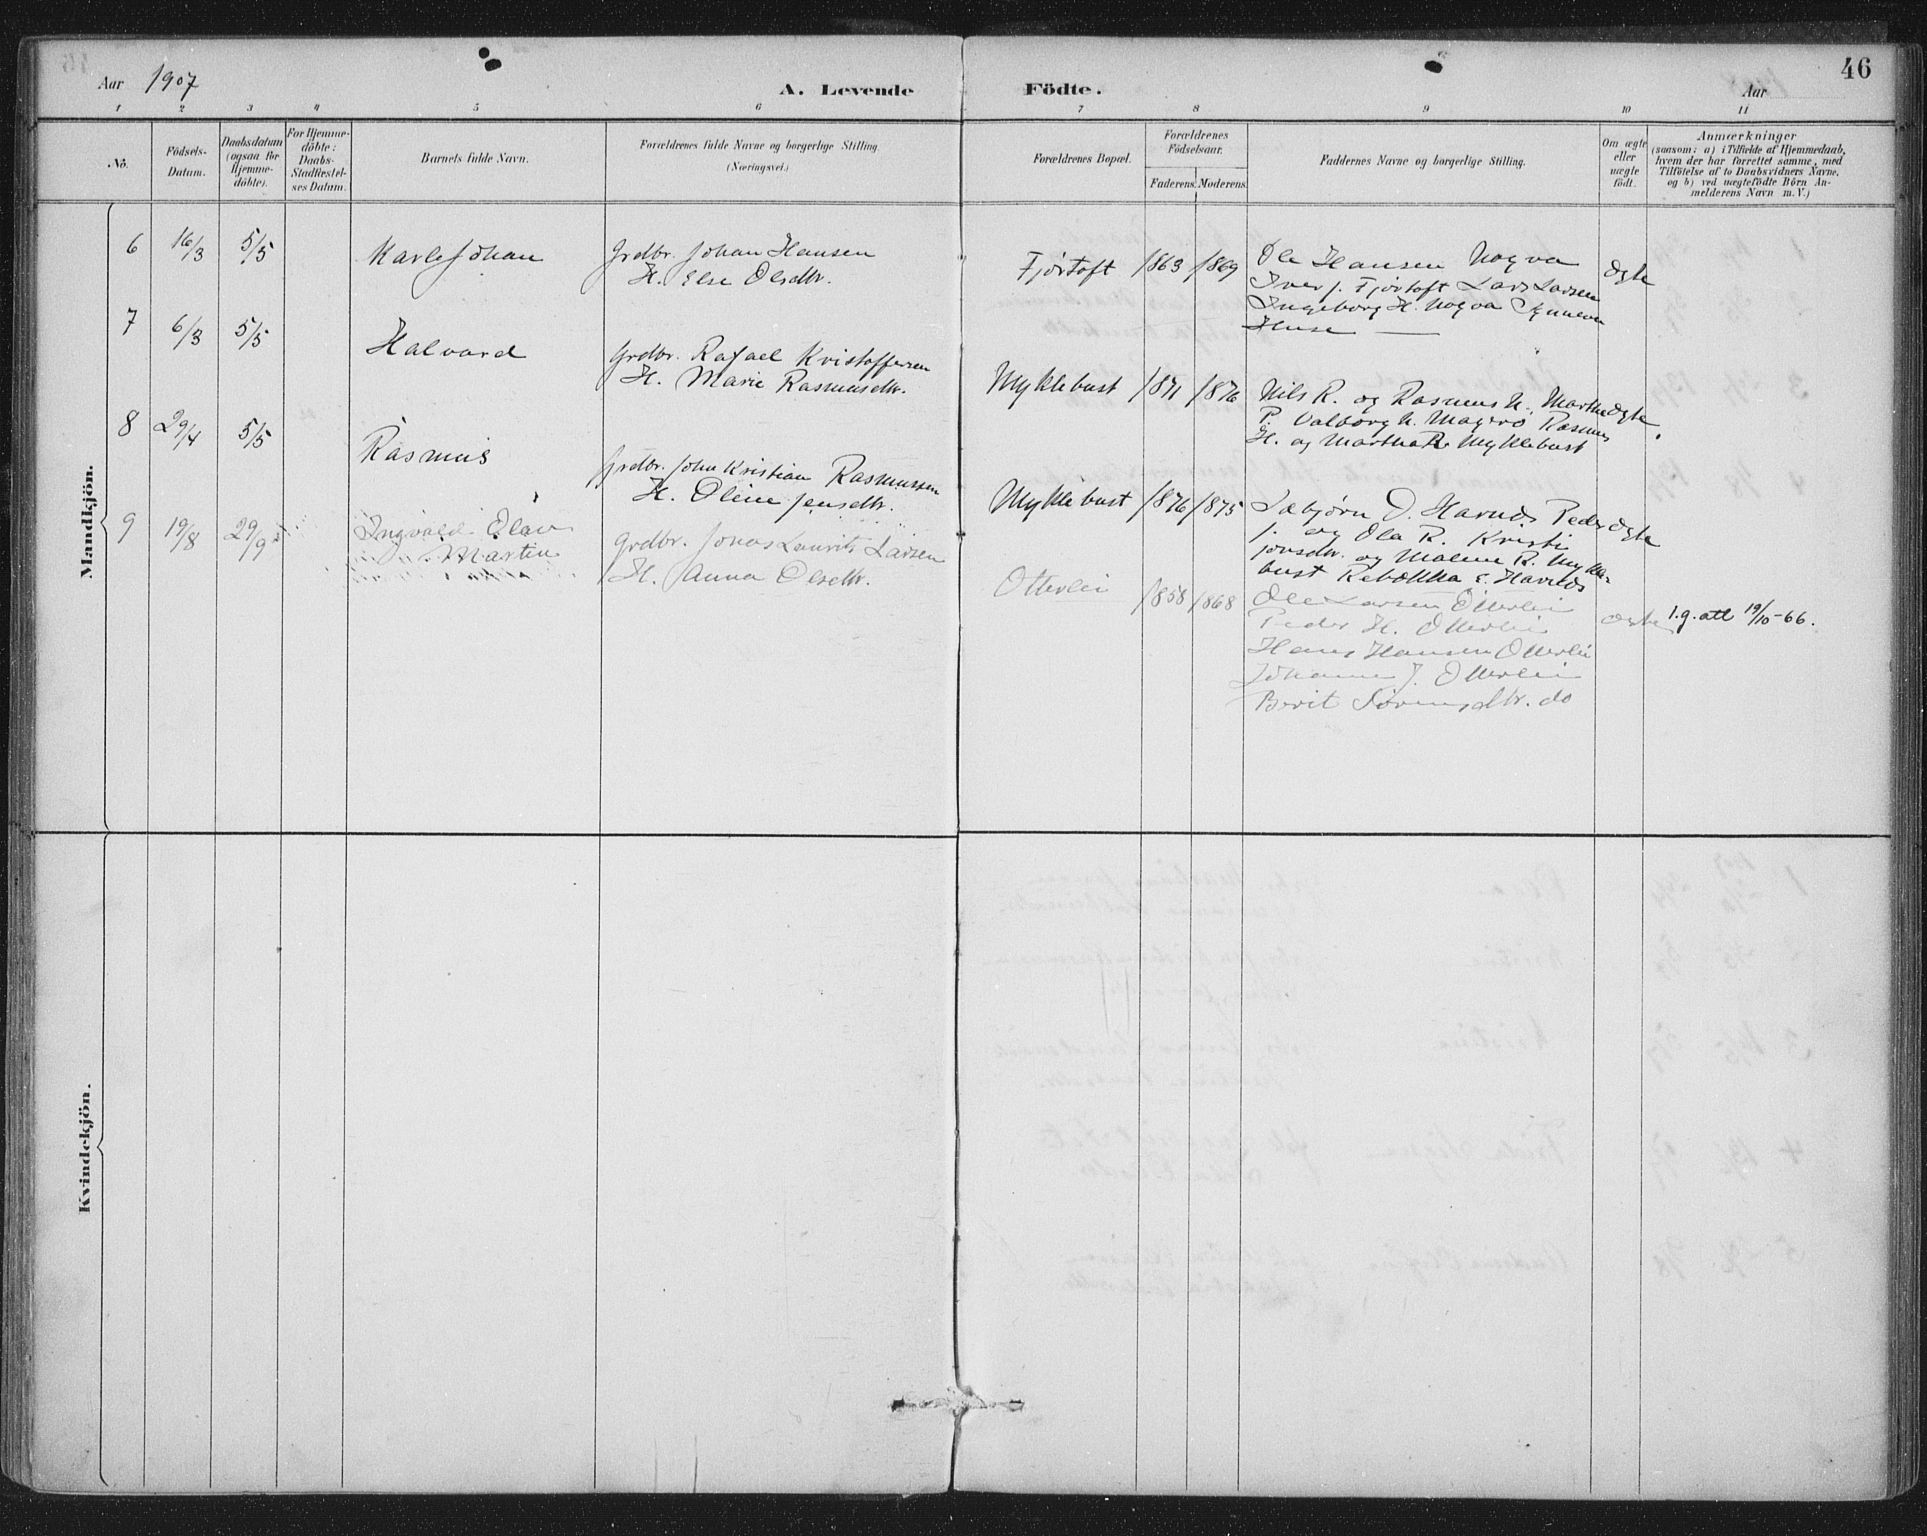 46
Aar 1907
A. Levende Födte.
Aar
1 2 3 4 5 6 7 8 9 10 11
No.
Födsels-Datum.
Daabsdatum (ogsaa for Hjemme-döbte).
For Hjemme-döbte: Daabs-Stadfæstel-ses Datum.
Barnets fulde Navn.
Forældrenes fulde Navne og borgerlige Stilling.
(Næringsvei.)
Forældrenes Bopæl.
Forældrenes Födselsaar.
Faderens. Moderens.
Faddernes Navne og borgerlige Stilling.
Om ægte eller uægte födt.
Anmærkninger
(saasom: a) i Tilfælde af Hjemmedaab,
hvem der har forrettet samme, med
Tilföielse af to Daabsvidners Navne,
og b) ved uægtefödte Börn An-
melderens Navn m. V.)
Mandkjön.
6 16/3 5/5 Karle Johan
Grdbr. Johan Hansen
H. Else Olsdtr.
Fjørtoft 1863 1869
Ole Hansen Nogva
Iver J. Fjørtoft Lars Larsen
Ingeborg H. Nogva Synneva
Huse
ægte
7 6/3 5/5 Halvard
Grdbr. Rafael Kristoffersen
H. Marie Rasmusdtr.
Myklebust 1871 1876
Nils R. og Rasmus N., Marthe
P. Valborg N. Magerø Rasmus
H. og Martha R. Myklebust
ægte
8 29/4 5/5 Rasmus
Grdbr. John Kristian Rasmussen
H. Oline Jensdtr.
Myklebust 1876 1875
D. Harnøs Peder
J. og Ola R. Kristi
Jonsdtr. og Malene R. Mykle-
bust Rebekka E. Harnøs
ægte
9 19/8 29/9 Ingvald Olav
Martin
Grdbr. Jonas Laurits Larsen
H. Anna Olsdtr.
Otterlei 1858 1868
Ole Larsen Otterlei
Peder H. Otterlei
Hans Hansen Otterlei
Johanne J. Otterlei
Berit Sørensdtr. do
ægte
l.g. att 19/10-66.
Kvindekjön.